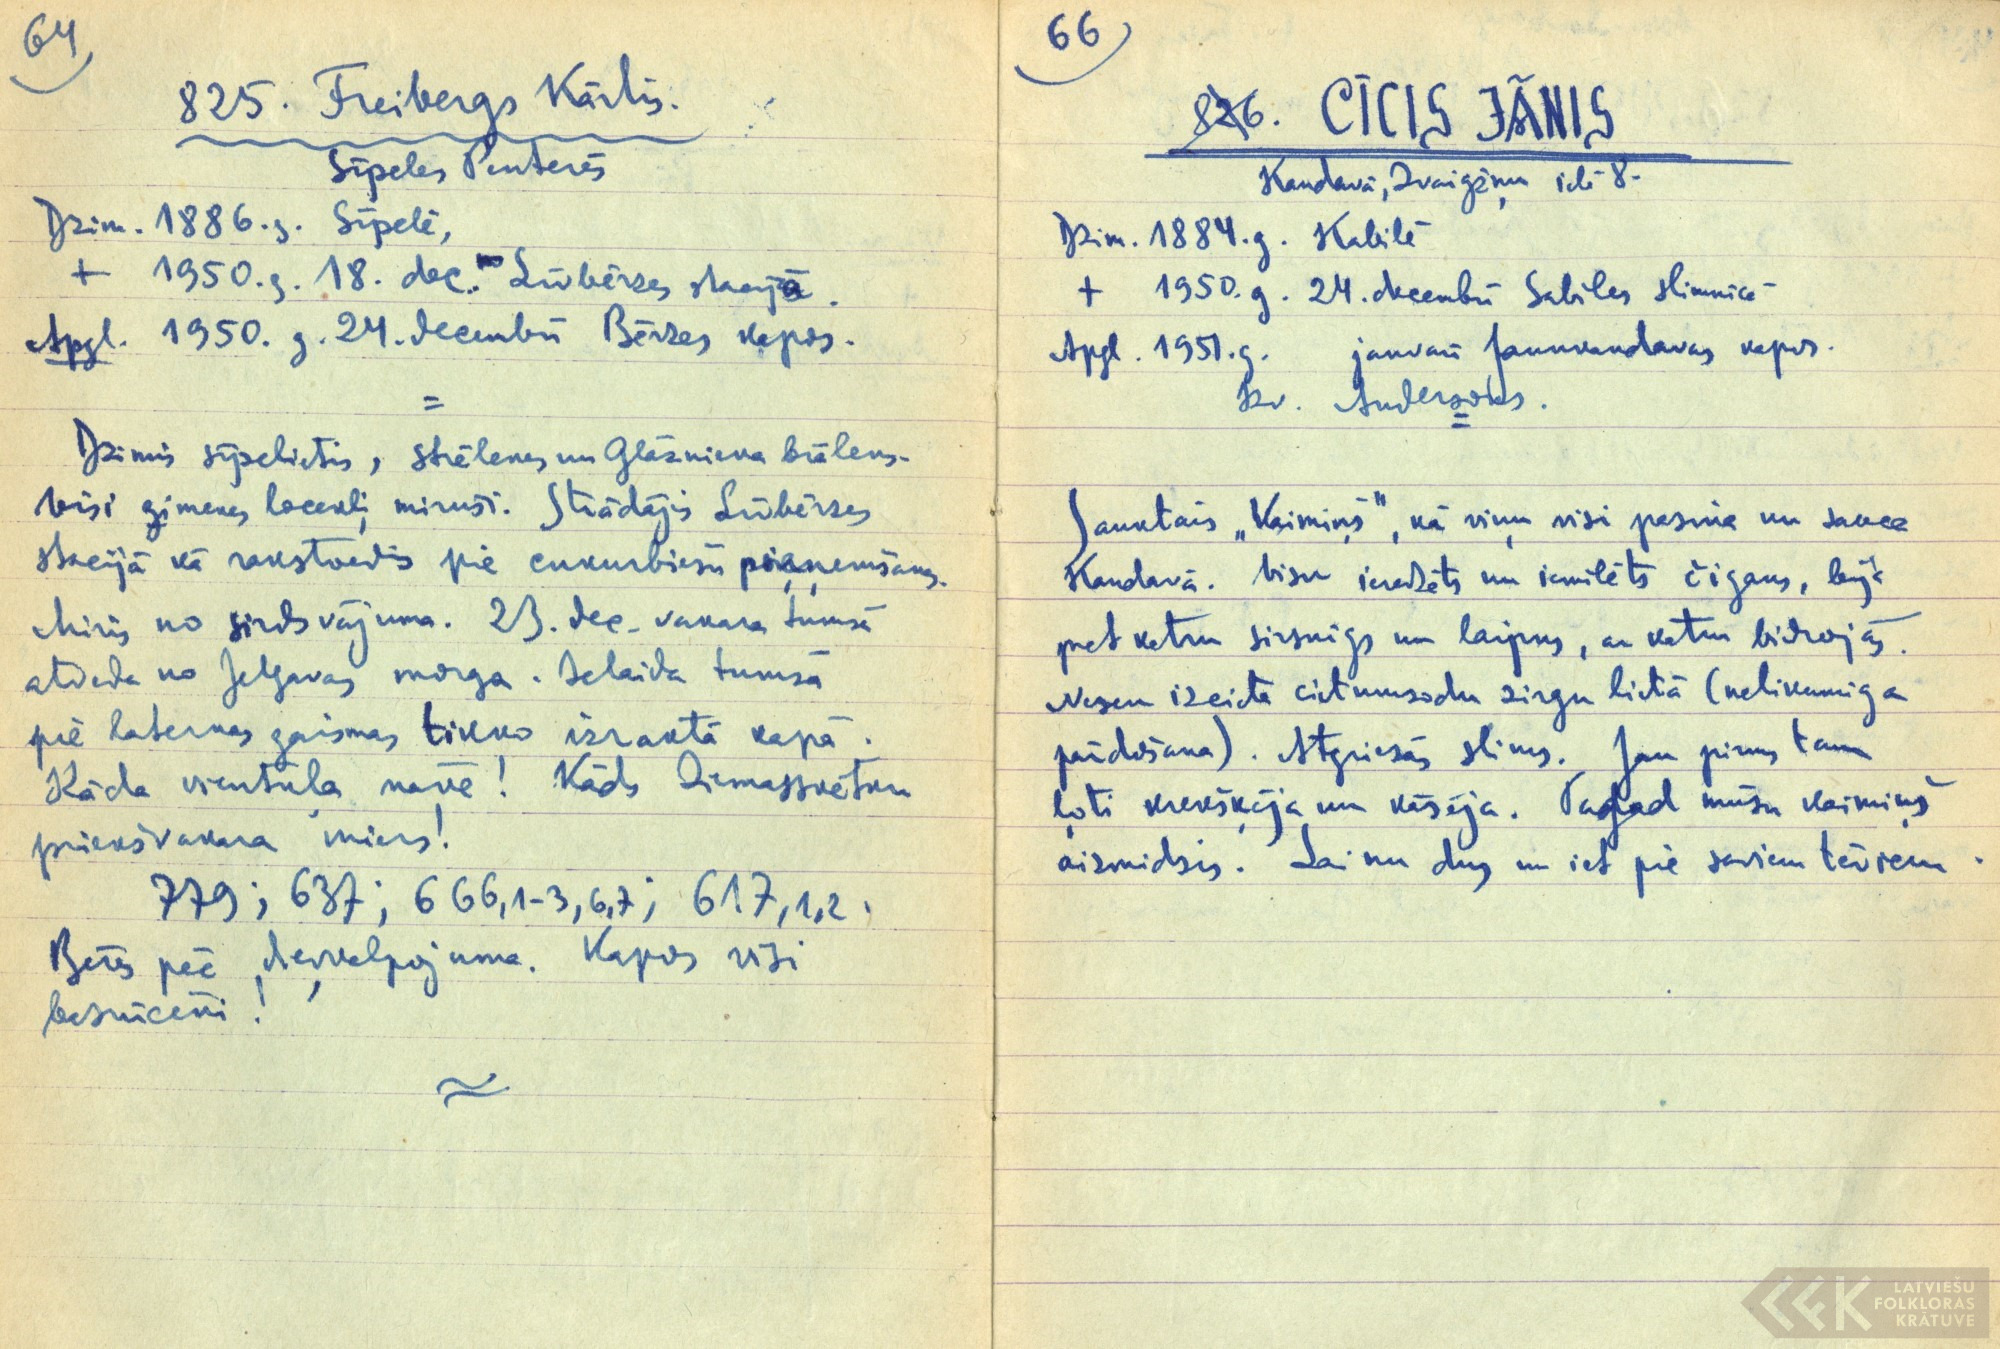 64
825. Freibergs Kārlis.
Sīpeles Penterēs
Dzim. 1886.g. Sīpelē,
+ 1950.g. 18. dec. Līvbērzes stacijā.
Apgl. 1950.g. 24. decembrī Bērzes kapos.
=
Dzimis sīpelietis, strēlenes un Glāznieka brālens.
Visi ģimenes locekļi miruši. Strādājis Līvbērzes
stacijā kā rakstvedis pie cukurbiešu pieņemšanas.
Miris no sirdsvājuma. 23. dec. vakara tumsā
atveda no Jelgavas morga. Ielaida tumsā
pie laternas gaismas tikko izraktā kapā.
Kāda vientuļa nāve! Kāds Ziemassvētku
priekšvakara miers!
779; 637; 666,1-3,6,7; 617,1,2.
Bēres pēc dievkalpojuma. Kapos visi
basnīcēni!
66
826. CĪCIS JĀNIS
Kandavā, Zvaigžņu ielā 8.
Dzim. 1884.g. Kabilē
+ 1950.g. 24. decembrī Sabiles slimnīcā
Apgl. 1951.g. janvārī Jaunkandavas kapos.
Kv. Andersons.
=
Sauktais „Kaimiņš", kā viņu visi pazina un sauca
Kandavā. Visu ieredzēts un iemīlēts čigāns, bija
pret katru sirsnīgs un laipns, ar katru bidrojās.
Nesen izcieta cietumsodu zirgu lietā (nelikumīga
pārdošana). Atgriezās slims. Jau pirms tam
ļoti krekšķēja un kāsēja. Tagad mūsu kaimiņš
aizmidzis. Lai nu dus un iet pie saviem tēviem.
LATVIEŠU
FOLKLORAS
KRĀTUVE